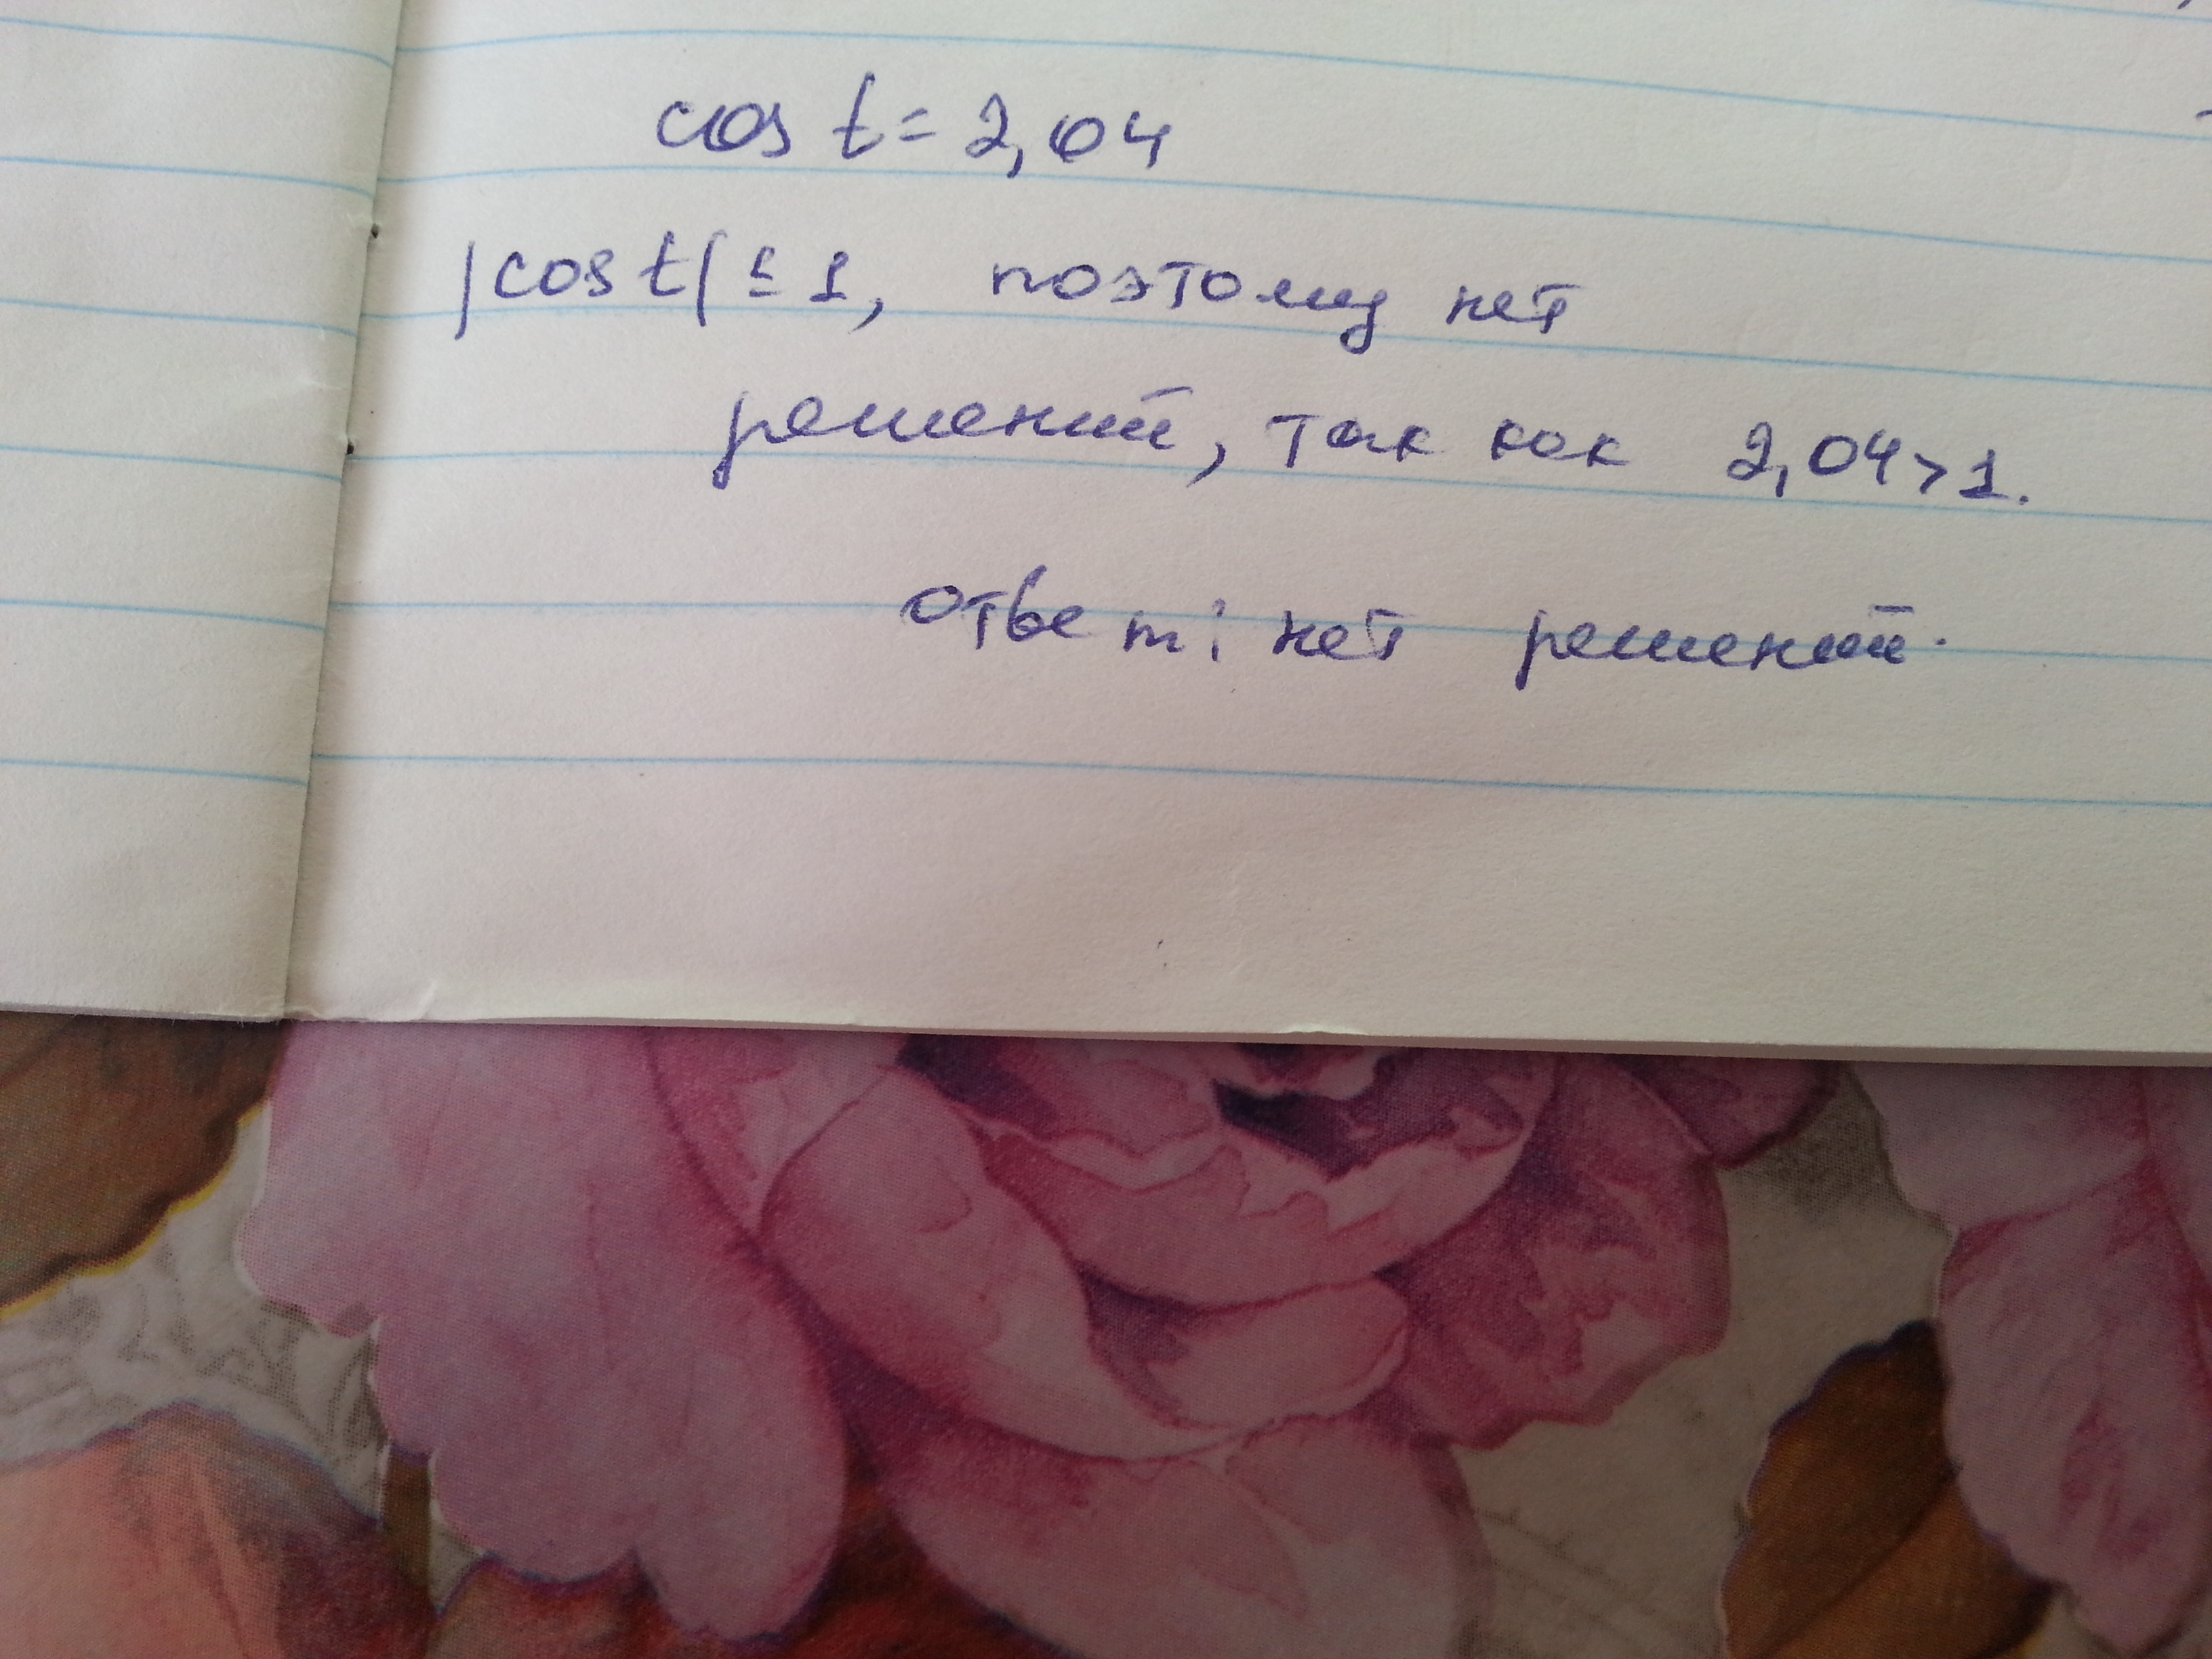 cos t = 2,04
|cos t| ≤ 1, поэтому нет
решений, так как 2,04 > 1.
ответ: нет решений.